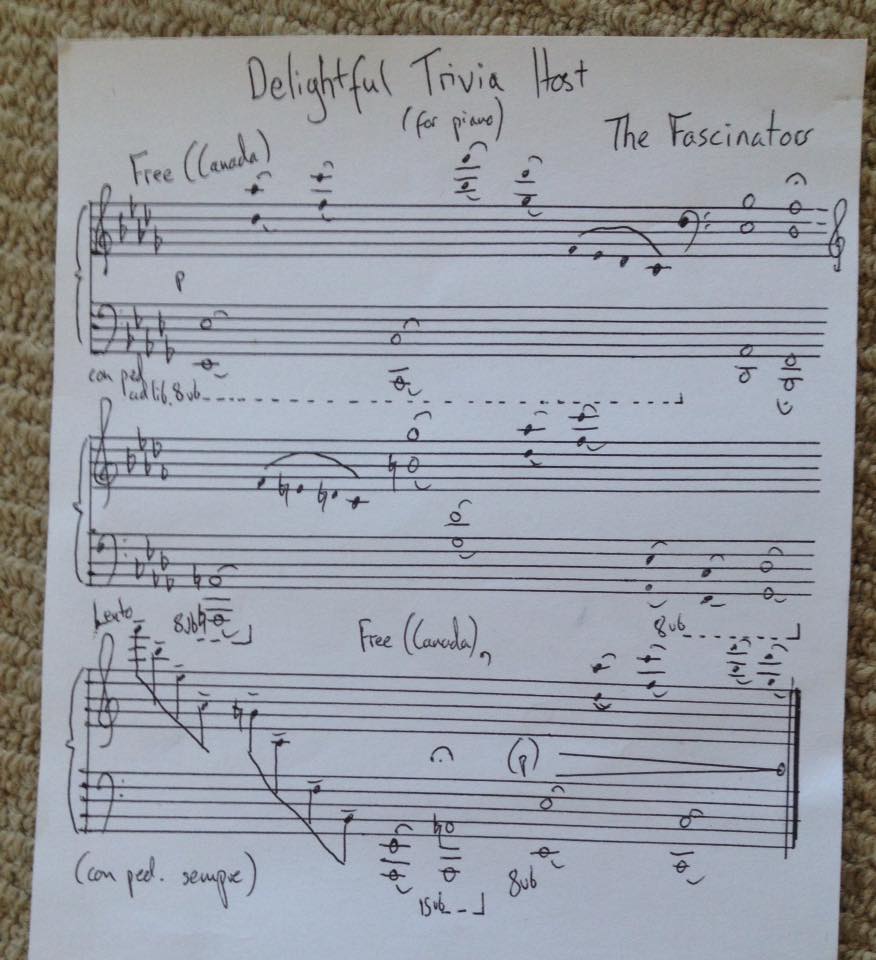 Delightful Trivia Host
(for piano)
The Fascinators
Free (Canada)
p
con ped.
ad lib. 8vb
8vb
8vb
Lento
Free (Canada)
(p)
(con ped. sempre)
15vb
8vb